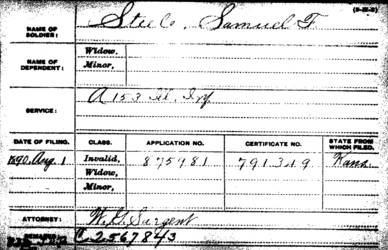 (3-M-2)
NAME OF SOLDIER: Steele, Samuel F.
NAME OF DEPENDENT: Widow,
Minor,
SERVICE: A 153 Ill. Inf
DATE OF FILING. CLASS. APPLICATION NO. CERTIFICATE NO. STATE FROM WHICH FILED.
1890, Aug. 1 Invalid, 875981 791349 Kans.
Widow,
Minor,
ATTORNEY: W. G. Sargent
REMARKS: C 2567843